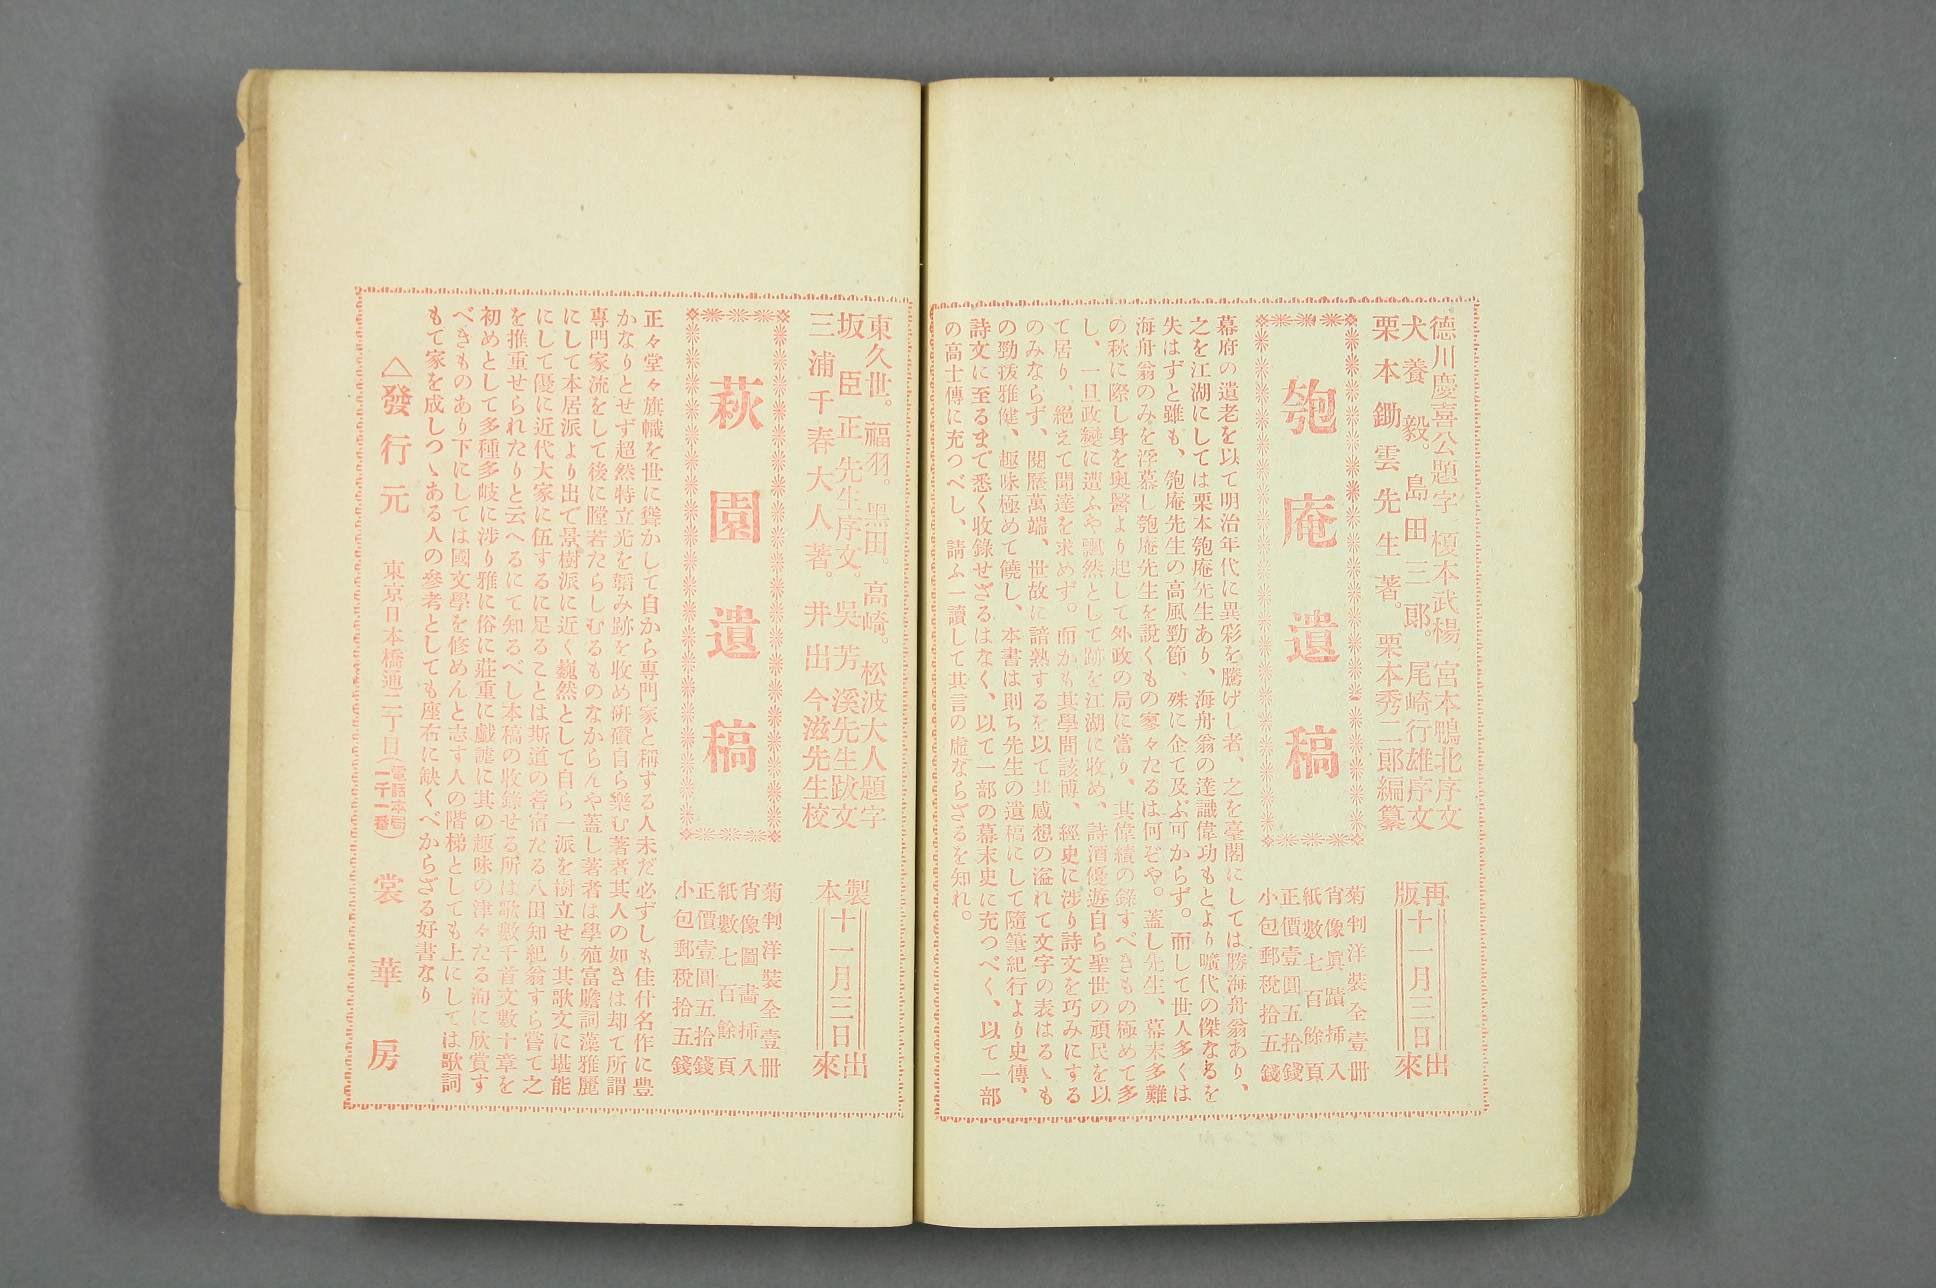 德川慶喜公題字。榎本武楊。宮本鴨北序文
犬養毅。島田三郞。尾崎行雄序文
栗本鋤雲先生著。栗本秀二郞編纂
再版十一月三日出來
匏庵遺稿
菊判洋裝全壹册
肖像眞蹟揷入
紙數七百餘頁
正價壹圓五拾錢
小包郵稅拾五錢
幕府の遺老を以て明治年代に異彩を騰げし者、之を臺閣にしては勝海舟翁あり、
之を江湖にしては栗本匏庵先生あり、海舟翁の達識偉功もとより曠代の傑なるを
失はずと雖も、匏庵先生の高風勁節、殊に企て及ぶ可からず。而して世人多くは
海舟翁のみを浮慕し匏庵先生を說くもの寥々たるは何ぞや。蓋し先生、幕末多難
の秋に際し身を奥醫より起して外政の局に當り、其偉績の錄すべきもの極めて多
し、一旦政變に遭ふや飄然として跡を江湖に收め、詩酒優遊自ら聖世の頑民を以
て居り、絕えて聞達を求めず。而かも其學問該博、經史に涉り詩文を巧みにする
のみならず、閱歷萬端、世故に諳熟するを以て其感想の溢れて文字の表はるゝも
の勁拔雅健、趣味極めて饒し、本書は則ち先生の遺稿にして隨筆紀行より史傳、
詩文に至るまで悉く收錄せざるはなく、以て一部の幕末史に充つべく、以て一部
の高士傳に充つべし、請ふ一讀して其言の虛ならざるを知れ。
東久世。福羽。黑田。高崎。松波大人題字
坂正臣先生序文。吳芳溪先生跋文
三浦千春大人著。井出今滋先生校
製本十一月三日出來
萩園遺稿
菊判洋裝全壹册
肖像圖畵揷入
紙數七百餘頁
正價壹圓五拾錢
小包郵稅拾五錢
正々堂々旗幟を世に聳かして自から專門家と稱する人未だ必ずしも佳什名作に豊
かなりとせず超然特立光を韜み跡を收め硏鑽自ら樂む著者其人の如きは却て所謂
專門家流をして後に瞠若たらしむるものなからんや蓋し著者は學殖富贍詞藻雅麗
にして本居派より出て景樹派に近く巍然として自ら一派を樹立せり其歌文に堪能
にして優に近代大家に伍するに足ることは斯道の耆宿たる八田知紀翁すら嘗て之
を推重せられたりと云へるにて知るべし本稿の收錄せる所は歌數千首文數十章を
初めとして多種多岐に涉り雅に俗に莊重に戱謔に其の趣味の津々たる洵に欣賞す
べきものあり下にしては國文學を修めんと志す人の階梯としても上にしては歌詞
もて家を成しつゝある人の參考としても座右に缺くべからざる好書なり
△發行元 東京日本橋通二丁目（電話本局二千一番） 裳華房